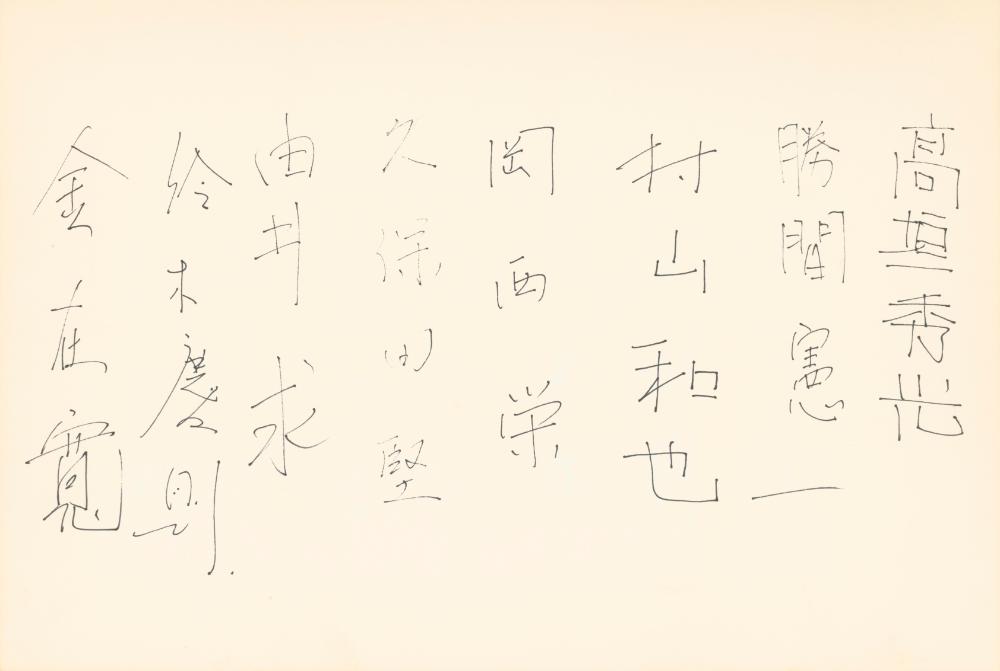 高垣秀光
勝間憲一
村山和也
岡西栄
久保田堅
由井求
鈴木慶則
金在寛